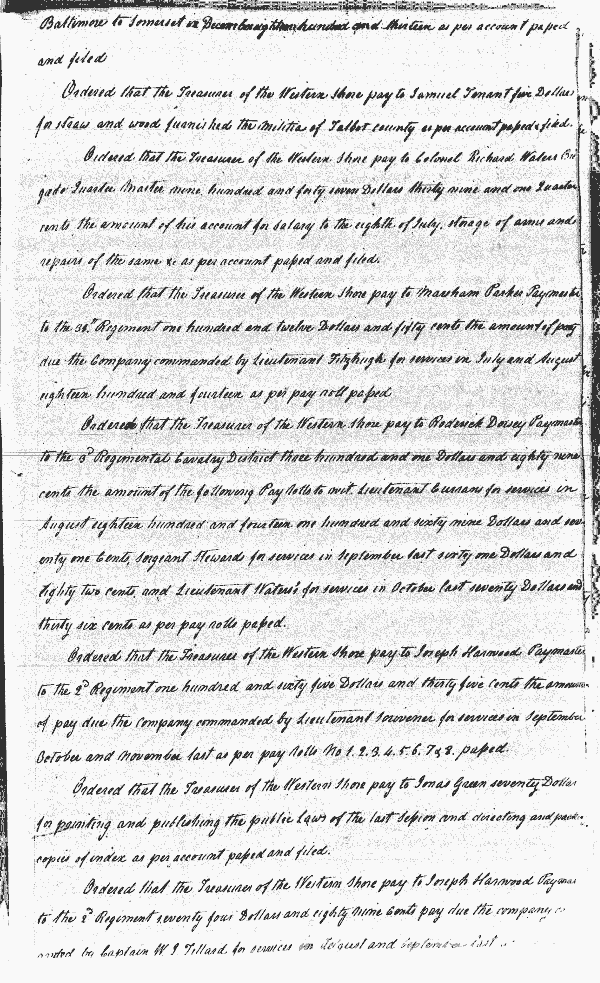 Baltimore to Somerset in December eighteen hundred and thirteen as per account passed
and filed
Ordered that the Treasurer of the Western Shore pay to Samuel Tenant five Dollars
for straw and wood furnished the militia of Talbot county as per account passed & filed.
Ordered that the Treasurer of the Western Shore pay to Colonel Richard Waters Bri
gade Quarter Master nine hundred and forty seven Dollars thirty nine and one Quarter
cents the amount of his account for salary to the eighth of July, storage of arms and
repairs of the same &c as per account passed and filed.
Ordered that the Treasurer of the Western Shore pay to Marsham Parker Paymaster
to the Regiment one hundred and twelve Dollars and fifty cents the amount of pay
due the Company commanded by Lieutenant Fitzhugh for services in July and August
eighteen hundred and fourteen as per pay roll passed
Ordered that the Treasurer of the Western Shore pay to Roderick Dorsey Paymaster
to the 3d Regimental Cavalry District three hundred and one Dollars and eighty nine
cents the amount of the following Pay rolls to wit. Lieutenant Currans for services in
August eighteen hundred and fourteen one hundred and sixty nine Dollars and sev
enty one Cents, Sergeant Stewards for services in September last sixty one Dollars and
Eighty two cents, and Lieutenant Waters's for services in October last seventy Dollars and
thirty six cents as per pay rolls passed.
Ordered that the Treasurer of the Western Shore pay to Joseph Harwood Paymaster
to the 2d Regiment one hundred and sixty five Dollars and thirty five Cents the amount
of pay due the company commanded by Lieutenant Scrivener for services in September
October and November last as per pay rolls No 1. 2. 3. 4. 5. 6. 7 & 8. passed.
Ordered that the Treasurer of the Western Shore pay to Jonas Green seventy Dollars
for printing and publishing the public Laws of the last Session and directing and
copies of index as per account passed and filed.
Ordered that the Treasurer of the Western Shore pay to Joseph Harwood Paymas
to the 2d Regiment seventy four Dollars and eighty nine Cents pay due the company
anded by Captain W. J. Tillard for services in August and September last